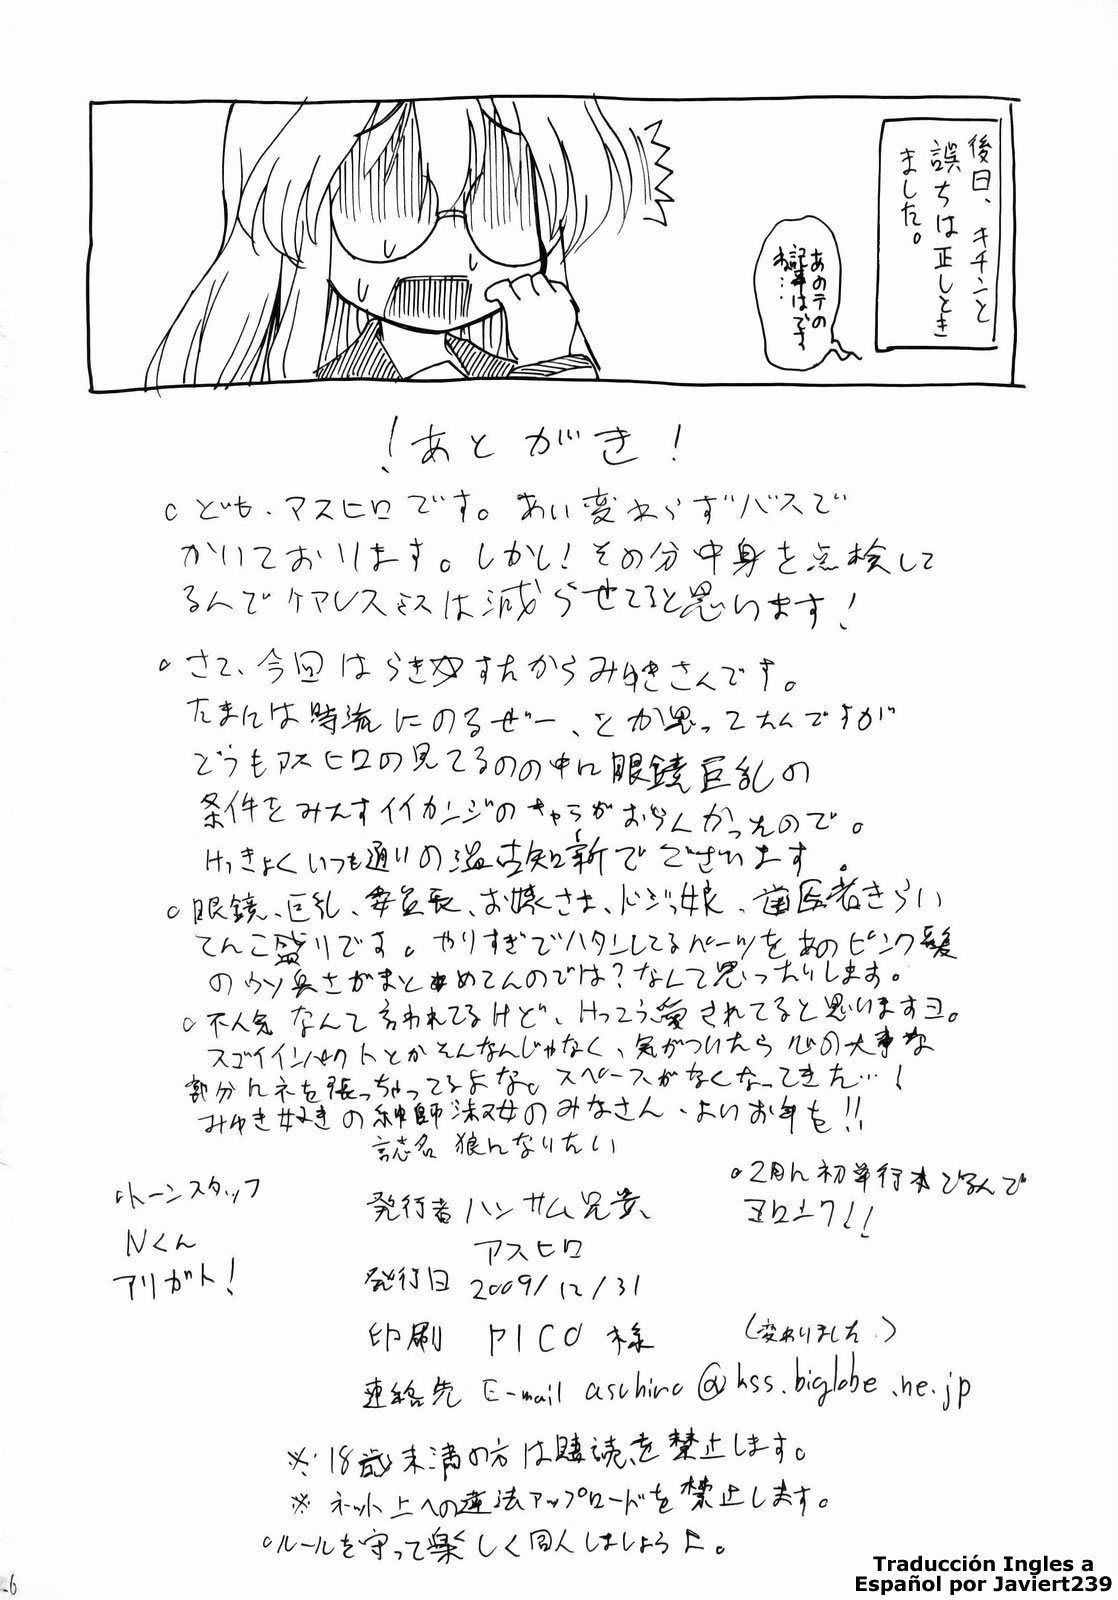 後日、キチンと
誤ちは正しとき
ました。
あのテの
記事はです
ね…
！あとがき！
○ども、アスヒロです。あい変わらずバスで
かいております。しかし！その分中身を点検して
るんでケアレスミスは減らせてると思います！
○さて、今回はらき☆すたからみゆきさんです。
たまには時流にのるぜー、とか思ってたんですが
どうもアスヒロの見てるのの中に眼鏡巨乳の
条件をみたすイイカンジのキャラがおらんかったので。
けっきょくいつも通りの温古知新でございます。
○眼鏡、巨乳、委員長、お嬢さま、ドジっ娘、歯医者きらい
てんこ盛りです。やりすぎでハタンしてるパーツをあのピンク髪
のウソ臭さがまとめてんのでは？なんて思ったりします。
○不人気なんて言われてるけど、けっこう愛されてると思いますヨ。
スゴイインパクトとかそんなんじゃなく、気がついたら心の大事な
部分にネを張っちゃってるよな。スペースがなくなってきた…！
みゆき好きの紳師淑女のみなさん、よいお年を!!
誌名 狼になりたい
○トーンスタッフ
Nくん
アリガト！
発行者 ハンサム兄貴、
アスヒロ
発行日 2009/12/31
印刷 PICO 様
○2月に初単行本でるんで
ヨロシク!!
(変わりました)
連絡先 E-mail asuhiro@kss.biglobe.ne.jp
※18歳未満の方は購読を禁止します。
※ネット上への違法アップロードを禁止します。
○ルールを守って楽しく同人しましょうよ。
Traducción Ingles a
Español por Javiert239